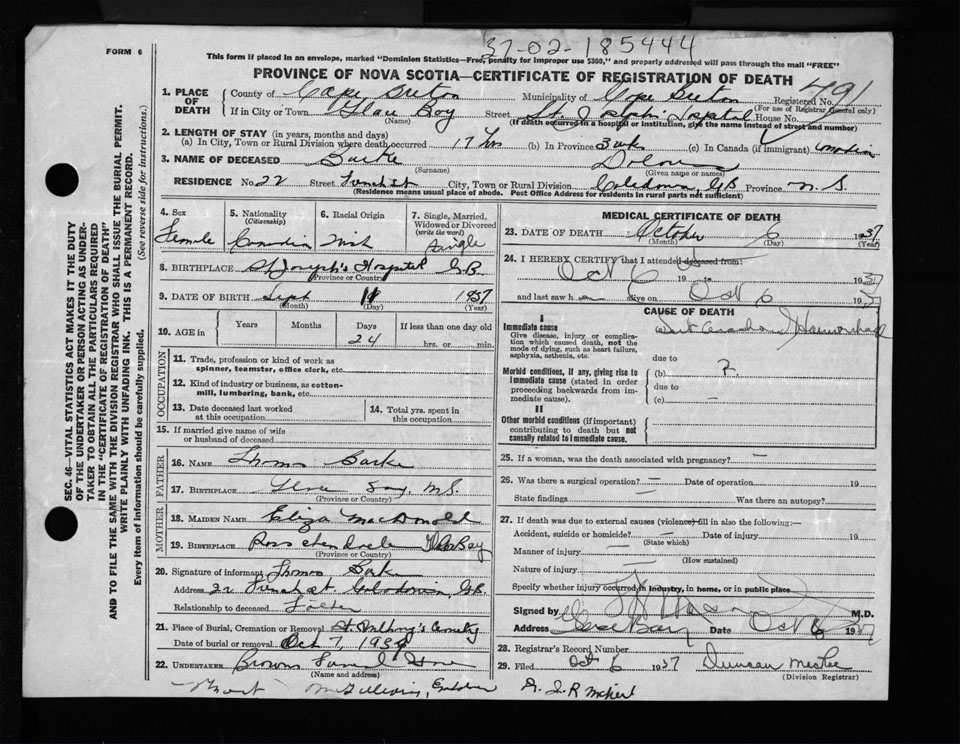 37-02-185444
FORM 6
This form if placed in an envelope, marked "Dominion Statistics—Free, penalty for improper use $300," and properly addressed will pass through the mail "FREE"
PROVINCE OF NOVA SCOTIA—CERTIFICATE OF REGISTRATION OF DEATH
Registered No. 491
(For use of Registrar General only)
1. PLACE OF DEATH
County of Cape Breton Municipality of Cape Breton
If in City or Town Glace Bay Street St. Joseph's Hospital House No.
(Name) (If death occurred in a hospital or institution, give the name instead of street and number)
2. LENGTH OF STAY (in years, months and days)
(a) In City, Town or Rural Division where death occurred 17 hrs (b) In Province 3 wks (c) In Canada (if immigrant) Canadian
3. NAME OF DECEASED Burke
(Surname) (Given name or names)
RESIDENCE No. 22 Street City, Town or Rural Division Caledonia, G.B. Province N.S.
(Residence means usual place of abode. Post Office Address for residents in rural parts not sufficient)
4. Sex
Female
5. Nationality
(Citizenship)
Canadian
6. Racial Origin
Irish
7. Single, Married, Widowed or Divorced
(write the word)
Single
8. BIRTHPLACE St Joseph's Hospital G.B.
(Province or Country)
9. DATE OF BIRTH Sept 11 1937
(Month) (Day) (Year)
10. AGE in
Years Months Days If less than one day old
24 hrs. or min.
OCCUPATION
11. Trade, profession or kind of work as spinner, teamster, office clerk, etc.
12. Kind of industry or business, as cotton-mill, lumbering, bank, etc.
13. Date deceased last worked at this occupation
14. Total yrs. spent in this occupation
15. If married give name of wife or husband of deceased
FATHER
16. NAME Thomas Burke
17. BIRTHPLACE Glace Bay, N.S.
(Province or Country)
MOTHER
18. MAIDEN NAME Eliza MacDonald
19. BIRTHPLACE Glace Bay
(Province or Country)
20. Signature of informant Thomas Burke
Address 22 St. Caledonia, G.B.
Relationship to deceased Father
21. Place of Burial, Cremation or Removal St Anthony's Cemetery
Date of burial or removal Oct 7, 1937
22. UNDERTAKER Browns Funeral Home
(Name and address)
MEDICAL CERTIFICATE OF DEATH
23. DATE OF DEATH October 6 1937
(Month) (Day) (Year)
24. I HEREBY CERTIFY that I attended deceased from:
Oct 6 19 to 1937
and last saw h alive on Oct 6 1937
CAUSE OF DEATH
I
Immediate cause
Give disease, injury or complication which caused death, not the mode of dying, such as heart failure, asphyxia, asthenia, etc.
Hemorrhage
due to
Morbid conditions, if any, giving rise to immediate cause (stated in order proceeding backwards from immediate cause).
(b) ?
due to
(c) —
II
Other morbid conditions (if important) contributing to death but not causally related to immediate cause.
25. If a woman, was the death associated with pregnancy? —
26. Was there a surgical operation? — Date of operation 19
State findings Was there an autopsy?
27. If death was due to external causes (violence) fill in also the following:—
Accident, suicide or homicide? — Date of injury 19
(State which)
Manner of injury —
(How sustained)
Nature of injury —
Specify whether injury occurred in industry, in home, or in public place
Signed by M.D.
Address Glace Bay Date Oct 6 1937
28. Registrar's Record Number
29. Filed Oct 6 1937 Duncan
(Division Registrar)
SEC. 46—VITAL STATISTICS ACT MAKES IT THE DUTY OF THE UNDERTAKER OR PERSON ACTING AS UNDERTAKER TO OBTAIN ALL THE PARTICULARS REQUIRED IN THE "CERTIFICATE OF REGISTRATION OF DEATH" AND TO FILE THE SAME WITH THE DIVISION REGISTRAR WHO SHALL ISSUE THE BURIAL PERMIT.
WRITE PLAINLY WITH UNFADING INK. THIS IS A PERMANENT RECORD.
Every item of information should be carefully supplied. (See reverse side for instructions.)